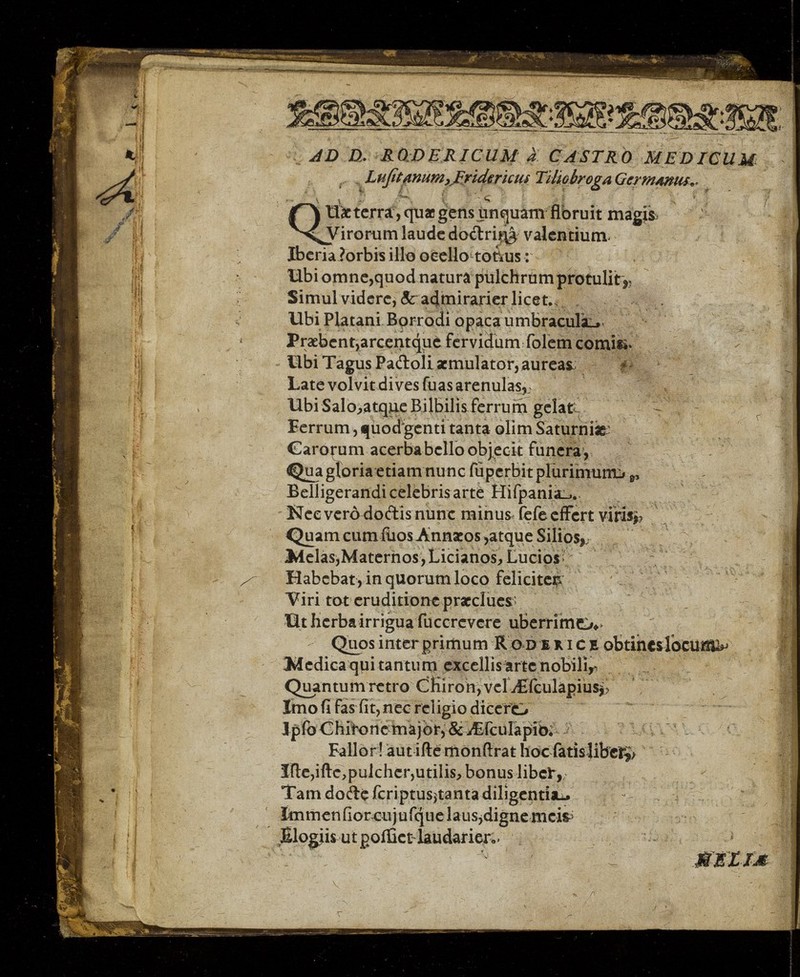 AD D. RODERICUM à CASTRO MEDICUM
Lusitanum, Fridericus Tiliobroga Germanus.
QUæ terra, quæ gens unquam floruit magis
Virorum laude doctrinâ valentium.
Iberia? orbis illo ocello totius:
Ubi omne, quod natura pulchrum protulit,
Simul videre, & admirarier licet.
Ubi Platani Borrodi opaca umbracula
Præbent, arcentque fervidum solem comis.
Ubi Tagus Pactoli æmulator, aureas
Late volvit dives suas arenulas,
Ubi Salo, atque Bilbilis ferrum gelat
Ferrum, quod genti tanta olim Saturniæ
Carorum acerba bello objecit funera,
Qua gloria etiam nunc superbit plurimum,
Belligerandi celebris arte Hispania.
Nec verò doctis nunc minus sese effert viris,
Quam cum suos Annæos, atque Silios,
Melas, Maternos, Licianos, Lucios
Habebat, in quorum loco feliciter
Viri tot eruditione præclues
Ut herba irrigua succrevere uberrime.
Quos inter primum RODERICE obtines locum
Medica qui tantum excellis arte nobili,
Quantum retro Chiron, vel Æsculapius;
Imo si fas sit, nec religio dicere
Ipso Chirone major, & Æsculapio.
Fallor! aut iste monstrat hoc satis liber,
Iste, iste, pulcher, utilis, bonus liber,
Tam docte scriptus, tanta diligentia
Immensior cujusque laus, digne meis
Elogiis ut possiet laudarier.
MELIA